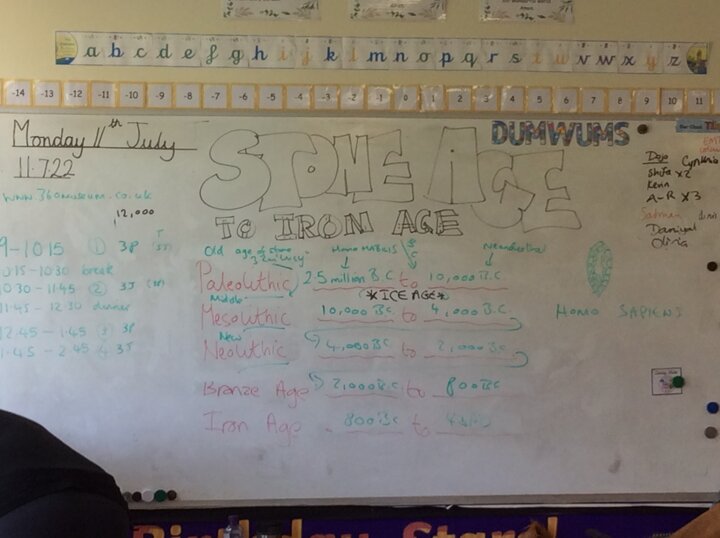 a b c d e f g h i j k l m n o p q r s t u v w x y z
-14 -13 -12 -11 -10 -9 -8 -7 -6 -5 -4 -3 -2 -1 0 1 2 3 4 5 6 7 8 9 10 11
Monday 11th July
11.7.22
www.360museum.co.uk
12,000
9-1015 ① 3P
1015-1030 break
1030-1145 ② 3J
11.45-12.30 dinner
12.45-1.45 3 3P
1.45-2.45 4 3J
STONE AGE
TO IRON AGE
DUMWUMS
Old age of stone
Homo HABILIS
Neanderthal
Paleoluthic 2.5 million B.C to 10,000 B.C
*ICE AGE*
Middle
Mesoluthic 10,000 BC to 4,000 B.C
New
Neoluthic 4,000 BC to 2,000 BC
Bronze Age 2,000 B.C. to 800 BC
Iron Age 800 BC to
HOMO SAPIENS
Cynthia
Shifa x2
A-R x3
Olivia
Birthday Stars!